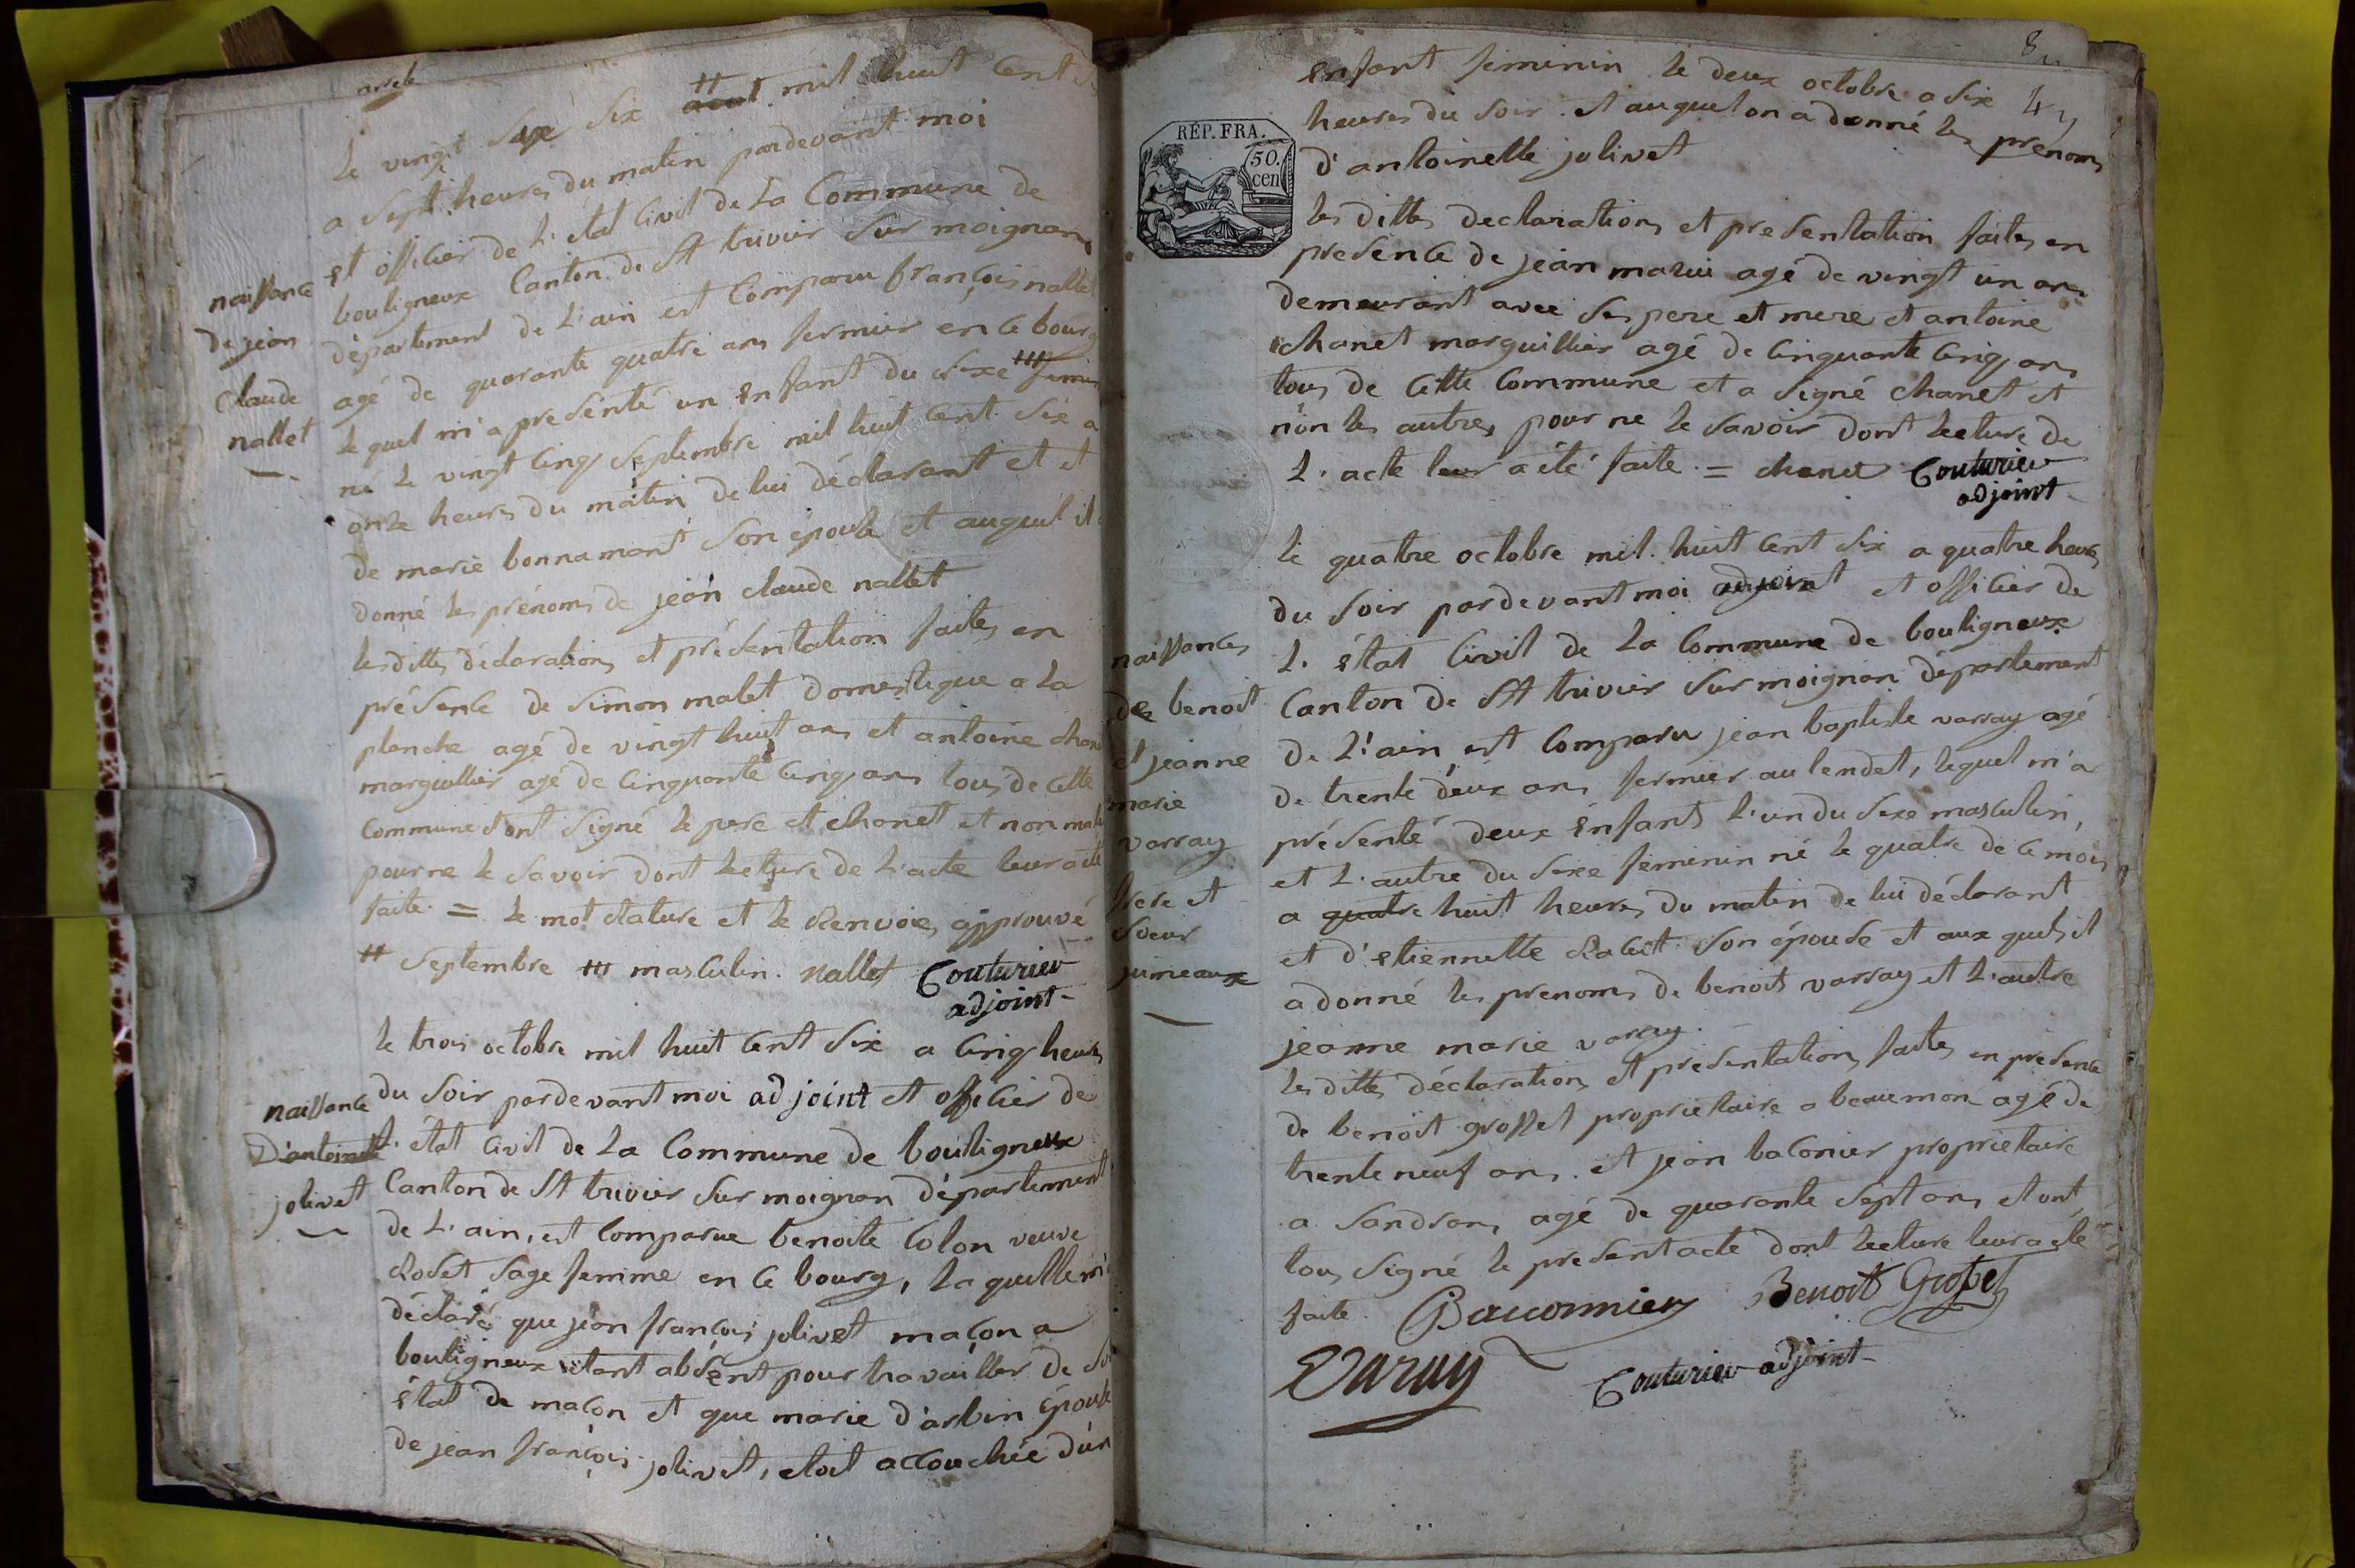 Le vingt six # aout mil huit cent
a sept heures du matin pardevant moi
et officier de l'etat Civil de La Commune de
bouligneux Canton de St trivier sur moignans
département de l'ain est Comparu françois nallet
agé de quarante quatre ans fermier en ce bourg
lequel m'a présenté un enfant du sexe
né le vingt cinq septembre mil huit cent six a
onze heures du matin de lui déclarant et
de marie bonnamant son épouse et auquel il
donné les prénoms de jean claude nallet
les dittes déclarations et présentation faites en
présence de simon malet domestique a la
planche agé de vingt huit ans et antoine
marguillier agé de cinquante cinq ans tous de cette
Commune et ont signé le pere et chanet et non
pour ne le savoir dont lecture de l'acte leur a été
faite = le mot et le renvoie approuvé
# septembre ## masculin. nallet Couturier
adjoint
naissance
de jean
claude
nallet
le trois octobre mil huit cent six a cinq heures
du soir pardevant moi adjoint et officier de
l'état Civil de La Commune de bouligneux
Canton de St trivier sur moignan département
de l'ain, est Comparue benoite Colon veuve
sage femme en ce bourg, laquelle m'a
déclaré que jean françois jolivet maçon a
bouligneux etant absent pour travailler de
état de maçon et que marie d'arbin épouse
de jean françois jolivet, etoit accouchée d'un
naissance
D'antoinette
jolivet
enfant feminin le deux octobre a six
heures du soir et auquel on a donné les prenoms
d'antoinette jolivet
les dittes declarations et presentation faites en
presence de jean agé de vingt un ans
demeurant avec ses pere et mere et antoine
chanet marguillier agé de cinquante cinq ans
tous de cette Commune et a signé chanet et
non les autres, pour ne le savoir dont lecture de
l'acte leur a été faite = chanet Couturier
adjoint
RÉP. FRA.
50.
cen
le quatre octobre mil huit cent six a quatre heures
du soir pardevant moi adjoint et officier de
l'état Civil de La Commune de bouligneux
Canton de St trivier sur moignan département
de l'ain est Comparu jean baptiste varray agé
de trente deux ans fermier au lendet, lequel m'a
présenté deux enfants l'un du sexe masculin,
et l'autre du sexe feminin né le quatre de ce mois
a quatre huit heures du matin de lui déclarant
et d'etiennette son épouse et aux quels il
a donné les prenoms de benoit varray et l'autre
jeanne marie varay.
les dittes déclarations et presentation faites en presence
de benoit grosset proprietaire a beaumon agé de
trente neuf ans. et jean baconier proprietaire
a sandrans, agé de quarante sept ans et ont
tous signé le present acte dont lecture leur a été
faite. Bauconnier Benoit Grosset
Varay Couturier adjoint
naissances
de benoit
et jeanne
marie
varray
frere et
soeur
jumeaux